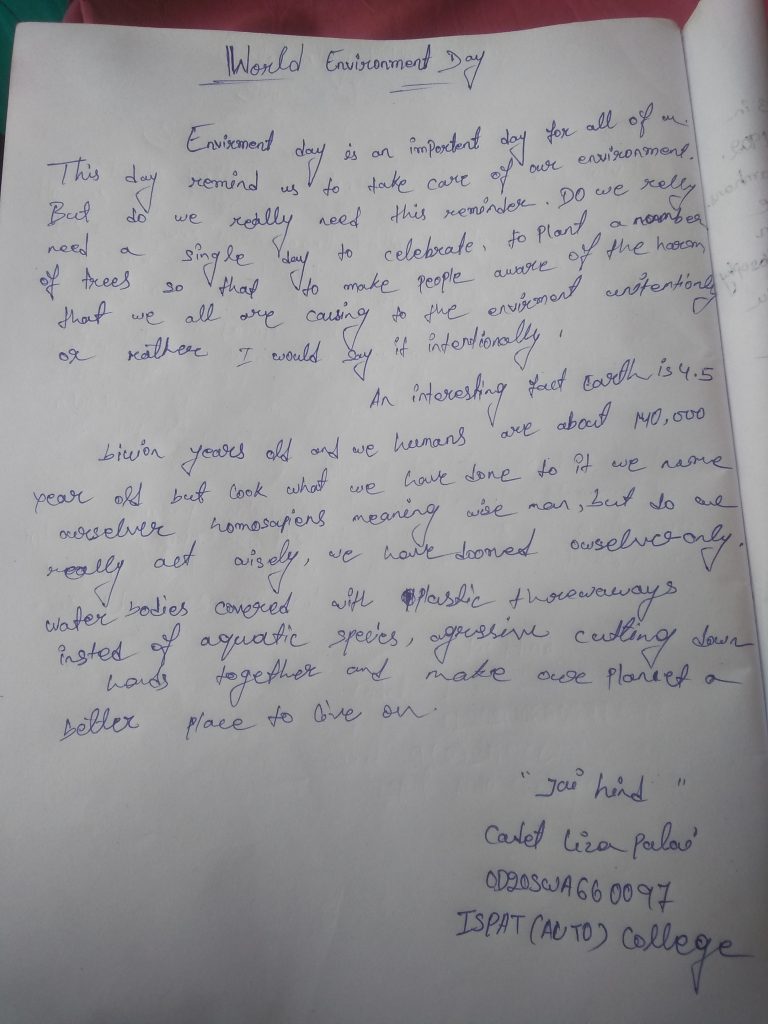 World Environment Day
Envirment day is an importent day for all of us.
This day remind us to take care of our environment.
But do we really need this reminder. DO we relly
need a single day to celebrate, to plant a number
of trees so that to make people aware of the harm
that we all are causing to the envirment unitentionly
or rather I would say it intentionally.
An interesting fact Earth is 4.5
billion years old and we humans are about 140,000
year old but look what we have done to it we name
ourselver homosapiens meaning wise man, but do we
really act wisely, we have doomed ourselves only.
water bodies covered with plastic throwaways
insted of aquatic species, agrissive cutting down
hands together and make our planet a
better place to live on.
"Jai hind"
Cadet Liza Palai
OD20SWA660097
ISPAT (AUTO) College